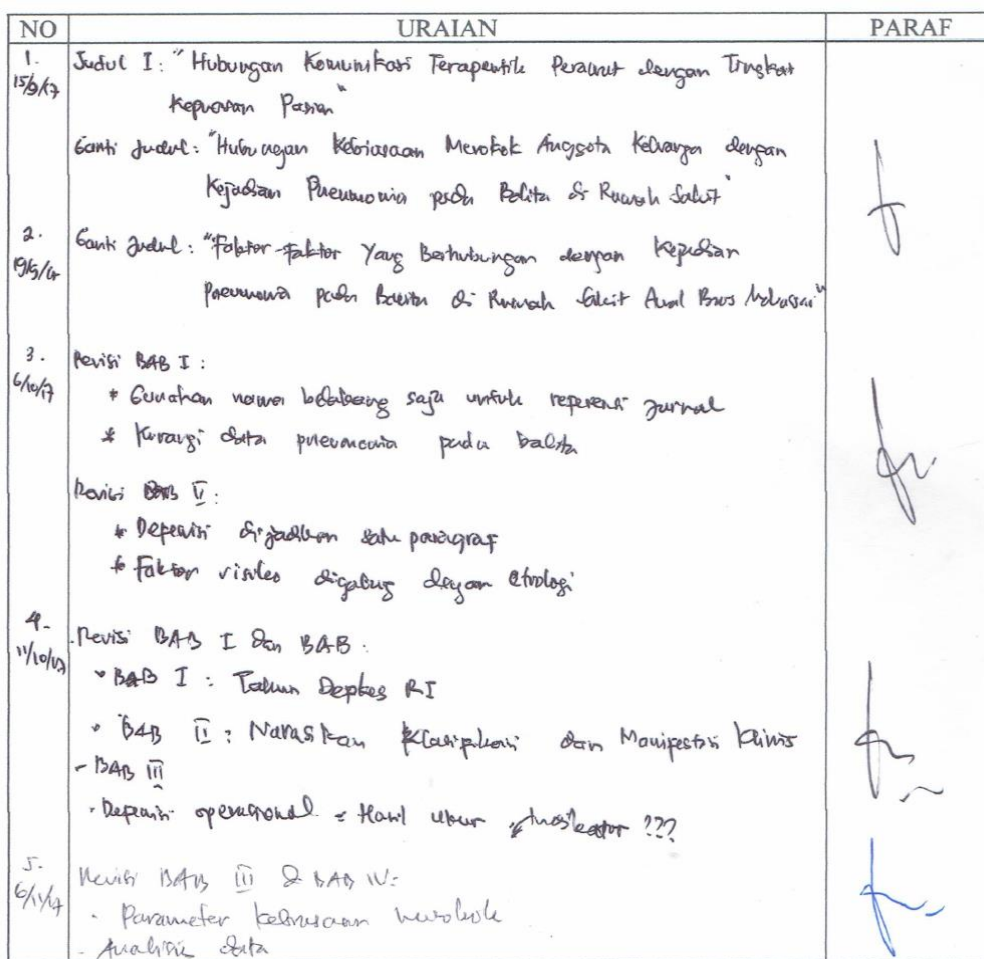 NO URAIAN PARAF
1. Judul I: "Hubungan Komunikasi Terapeutik Perawat dengan Tingkat
15/9/17 Kepuasan Pasien"
Ganti Judul: "Hubungan Kebiasaan Merokok Anggota Keluarga dengan
Kejadian Pneumonia pada Balita di Rumah Sakit"
2. Ganti Judul: "Faktor-faktor Yang Berhubungan dengan Kejadian
Pneumonia pada Balita di Rumah Sakit Awal Bros Makassar"
3. Revisi BAB I:
6/10/17 * Gunakan nama belakang saja untuk referensi jurnal
* Kurangi data pneumonia pada balita
Revisi BAB II:
* Defenisi dijadikan satu paragraf
* Faktor risiko digabung dengan etiologi
4. - Revisi BAB I dan BAB:
11/10/17 • BAB I: Tahun Depkes RI
• BAB II: Narasikan Klasifikasi dan Manifestasi Klinis
- BAB III
• Defenisi operasional = Hasil ukur, Indikator ???
5. Revisi BAB III & BAB IV:
6/11/17 - Parameter kebiasaan merokok
- Analisis data